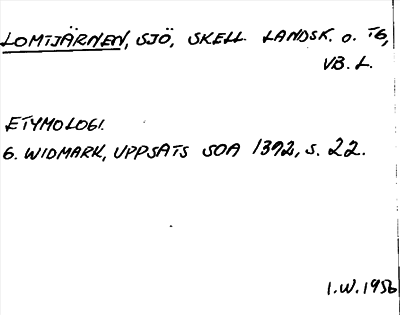 LOMTJÄRNEN, SJÖ, SKELL. LANDSK. O. TG,
VB. L.
ETYMOLOGI.
G. WIDMARK, UPPSATS SOA 1392, S. 22.
I.W. 1956